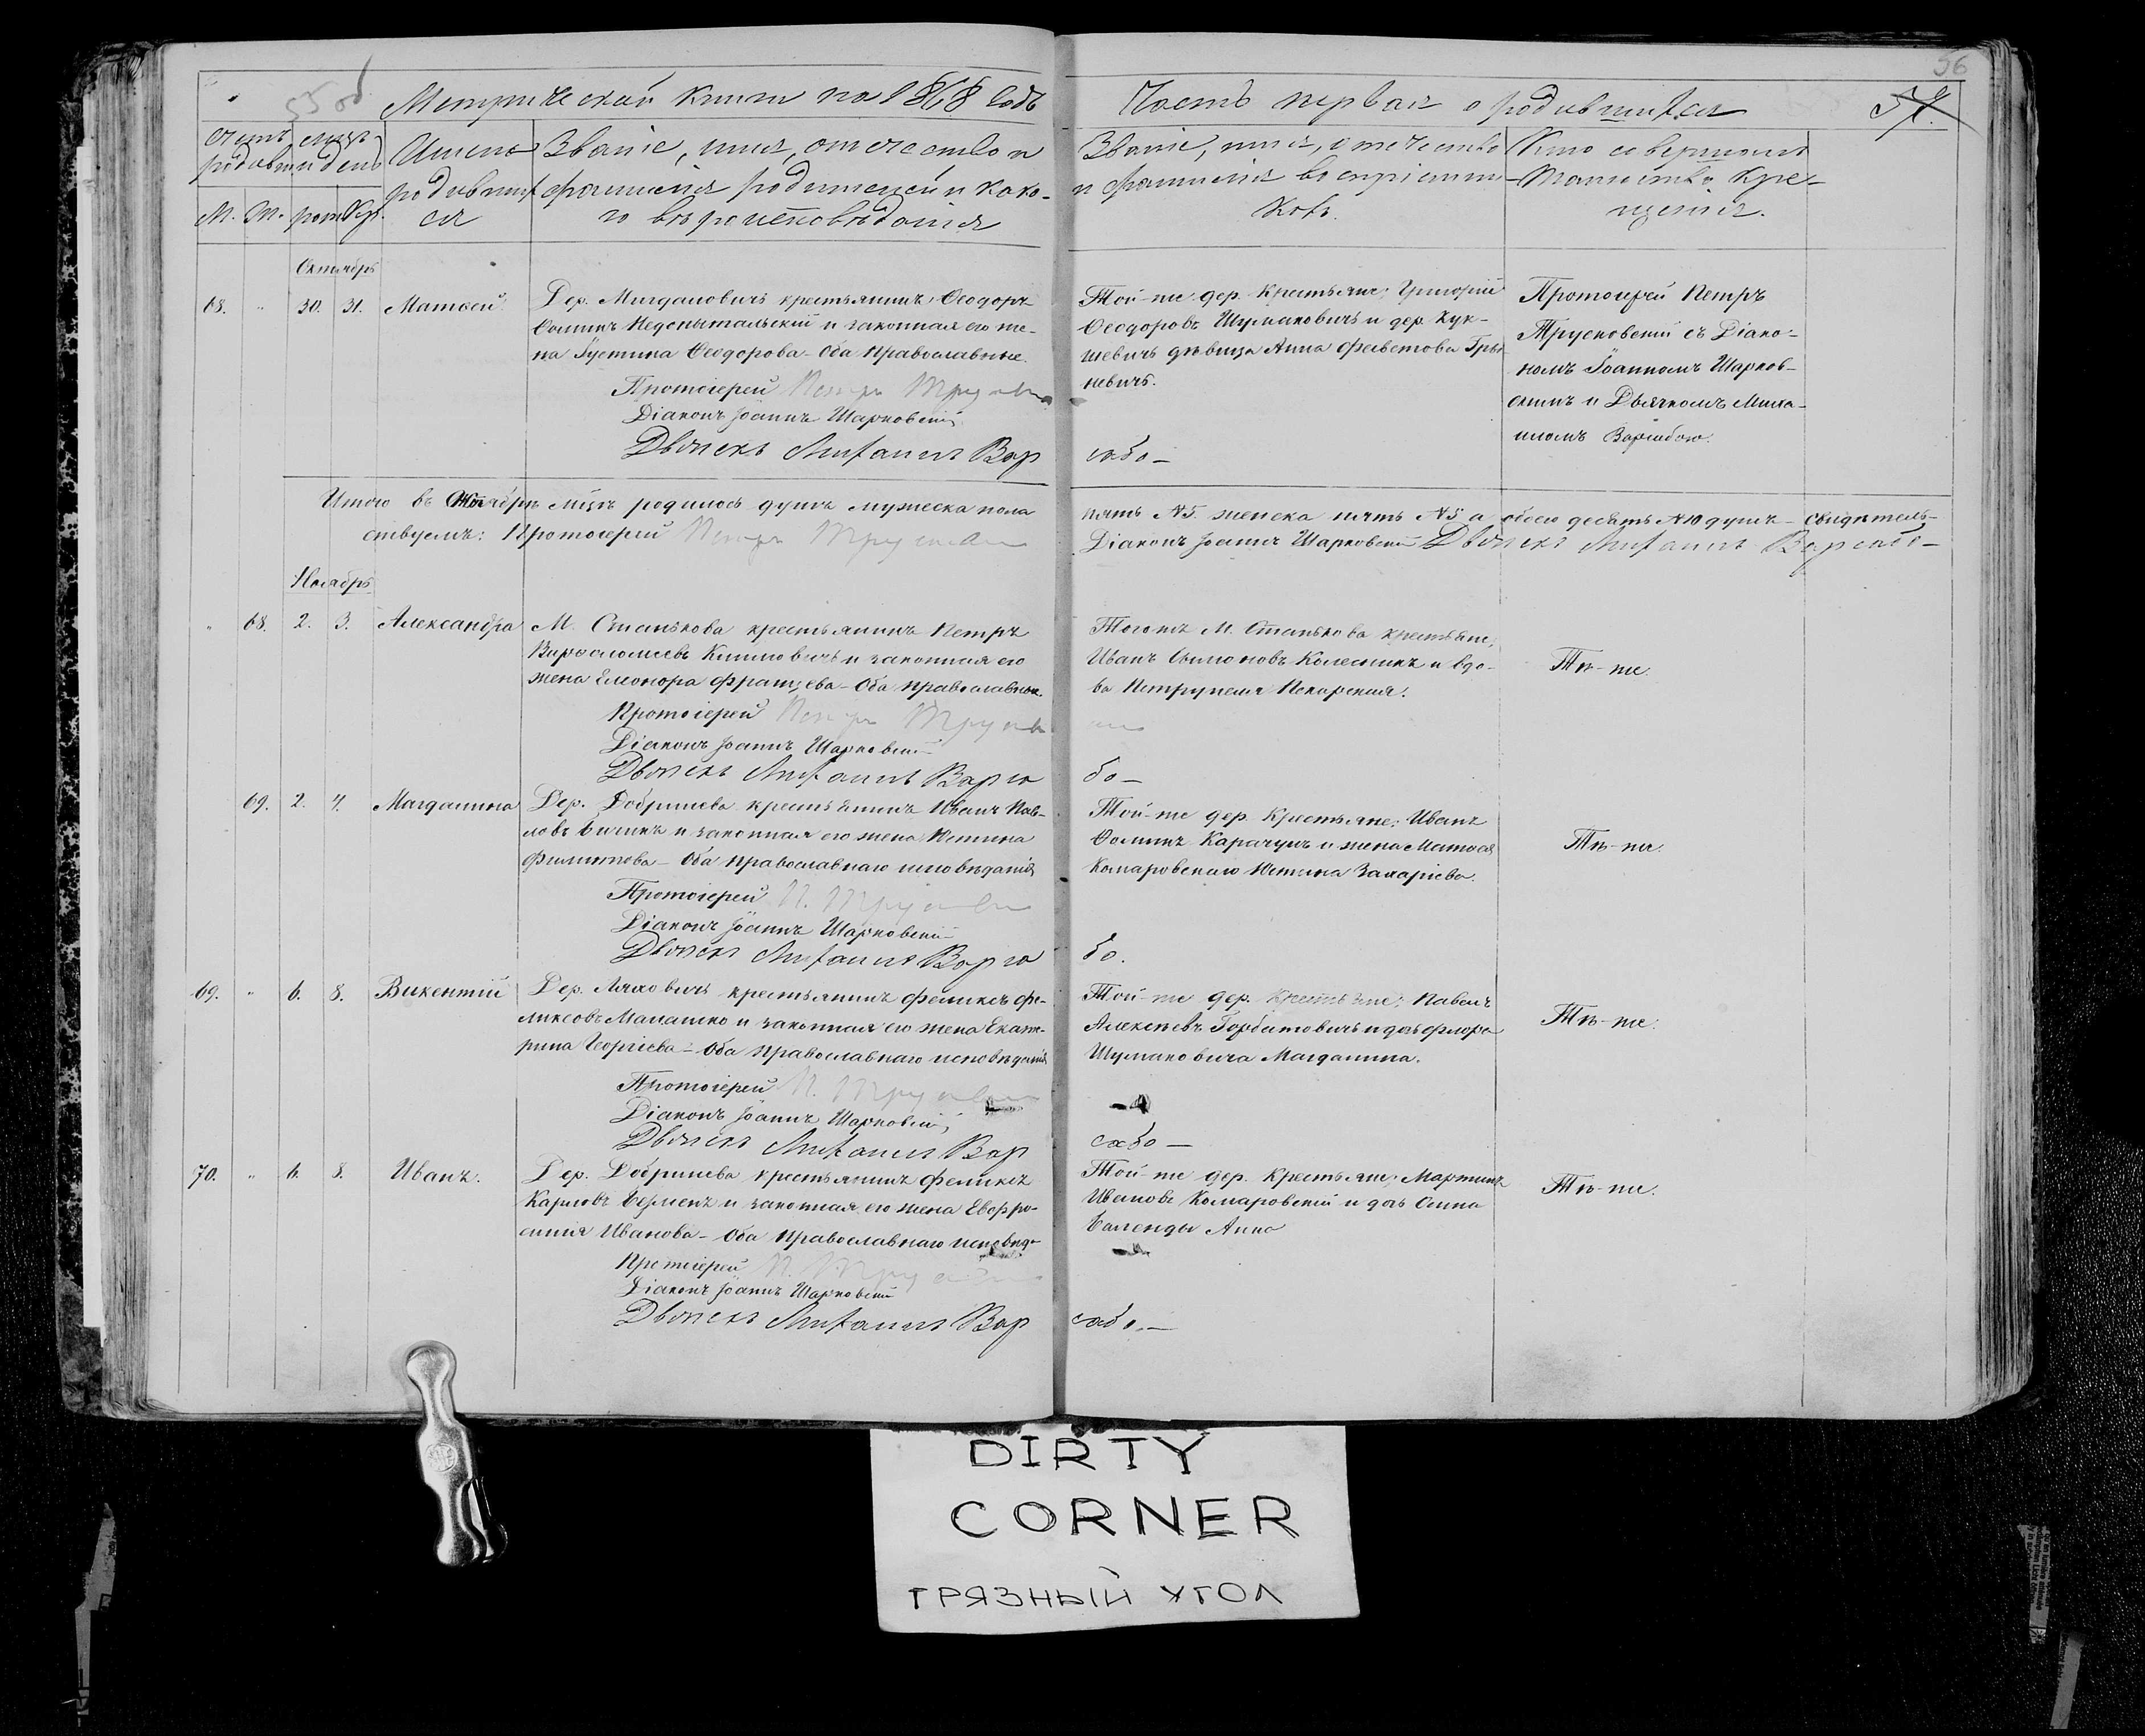 56
55 об
Метрической книги на 1868 годъ
Часть первая о родившихся
Счетъ родившихся
Мѣсяцъ и день
М. Ж. рож. Кр.
Имена родившихся
Званіе, имя, отечество и
фамилія родителей и како-
го вѣроисповѣданія
Званіе, имя, отечество
и фамилія воспріемни-
ковъ.
Кто совершалъ
таинство кре-
щенія.
Октябрь
68. " 30. 31. Матѳей
Дер. Мигдаловичъ крестьянинъ Ѳеодоръ
Ѳоминъ и законная его же-
на Іустина Ѳеодорова - Оба Православные.
Протоіерей Петръ Трусковскій
Діаконъ Іоаннъ Шарковскій
Дьячекъ Михаилъ Вар
сабо –
Той-же дер. Крестьяне; Григорій
Ѳеодоровъ Шумановичъ и дер. Кук-
шевичъ дѣвица Анна
невичъ.
Протоіерей Петръ
Трусковскій съ Діако-
номъ Іоанномъ Шарков-
скимъ и Дьячкомъ Миха-
иломъ Варсабою.
Итого въ Октябрѣ мцѣ родилось душъ мужеска пола
пять №5. женска пять №5 а обоего десять №10 душъ – свидѣтель-
ствуемъ: Протоіерей Петръ Трусковскій
Діаконъ Іоаннъ Шарковскій Дьячекъ Михаилъ Варсабо –
Ноябрь
" 68. 2. 3. Александра
М. Станькова крестьянинъ Петръ
Варѳоломеевъ Климовичъ и законная его
жена Елеонора Францева - Оба православные.
Протоіерей Петръ Трусковскій
Діаконъ Іоаннъ Шарковскій
Дьячекъ Михаилъ Варса
бо –
Тогожъ М. Станькова крестьяне;
Иванъ Симоновъ Колесникъ и вдо-
ва Петрунеля Пекарская.
Тѣ-же.
69. 2. 4. Магдалина
Дер. Добринева крестьянинъ Иванъ Пав-
ловъ и законная его жена Юстина
Филипова – Оба православнаго исповѣданія
Протоіерей П. Трусковскій
Діаконъ Іоаннъ Шарковскій
Дьячекъ Михаилъ Варса
бо.
Той-же дер. Крестьяне: Иванъ
Ѳоминъ Карачунъ и жена Матѳея
Комаровскаго Юстина Захаріева.
Тѣ-же.
69. " 6. 8. Викентій
Дер. Ляховичъ крестьянинъ Феликсъ Фе-
ликсовъ Малашко и законная его жена Екате-
рина Георгіева – Оба православнаго исповѣданія
Протоіерей П. Трусковскій
Діаконъ Іоаннъ Шарковскій
Дьячекъ Михаилъ Вар
сабо –
Той-же дер. Крестьяне; Павелъ
Алексѣевъ Горбатовичъ и дочь Флора
Шумановича Магдалина.
Тѣ-же.
70. " 6. 8. Иванъ.
Дер. Добринева крестьянинъ Феликсъ
Карловъ и законная его жена Евфро-
синія Иванова – Оба православнаго исповѣда
Протоіерей П. Трусковскій
Діаконъ Іоаннъ Шарковскій
Дьячекъ Михаилъ Вар
сабо. –
Той-же дер. Крестьяне; Мартинъ
Ивановъ Комаровскій и дочь
Анна
Тѣ-же.
DIRTY
CORNER
ГРЯЗНЫЙ УГОЛ